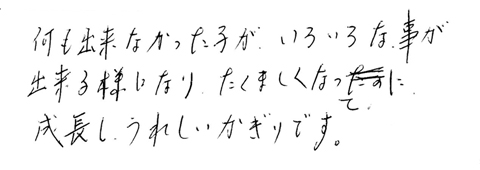 何も出来なかった子が、いろいろな事が
出来る様になり、たくましくなってに
成長し、うれしいかぎりです。